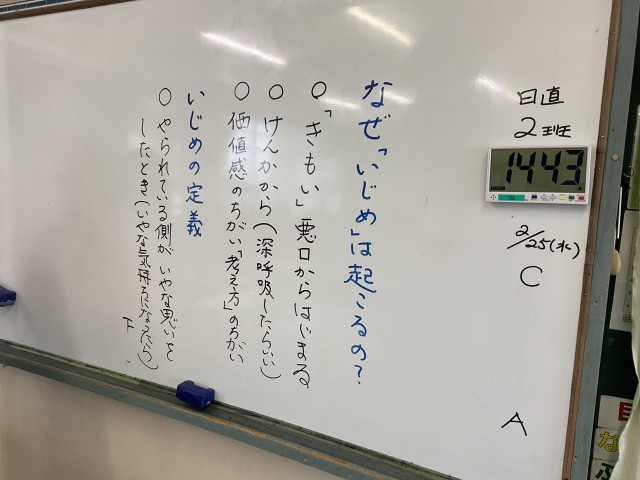 日直
2班
14:43
2/25(水)
C
A
なぜ「いじめ」は起こるの?
○「きもい」悪口からはじまる
○けんかから(深呼吸したらいい)
○価値感のちがい「考え方」のちがい
いじめの定義
○やられている側がいやな思いを
したとき(いやな気持ちになったら)